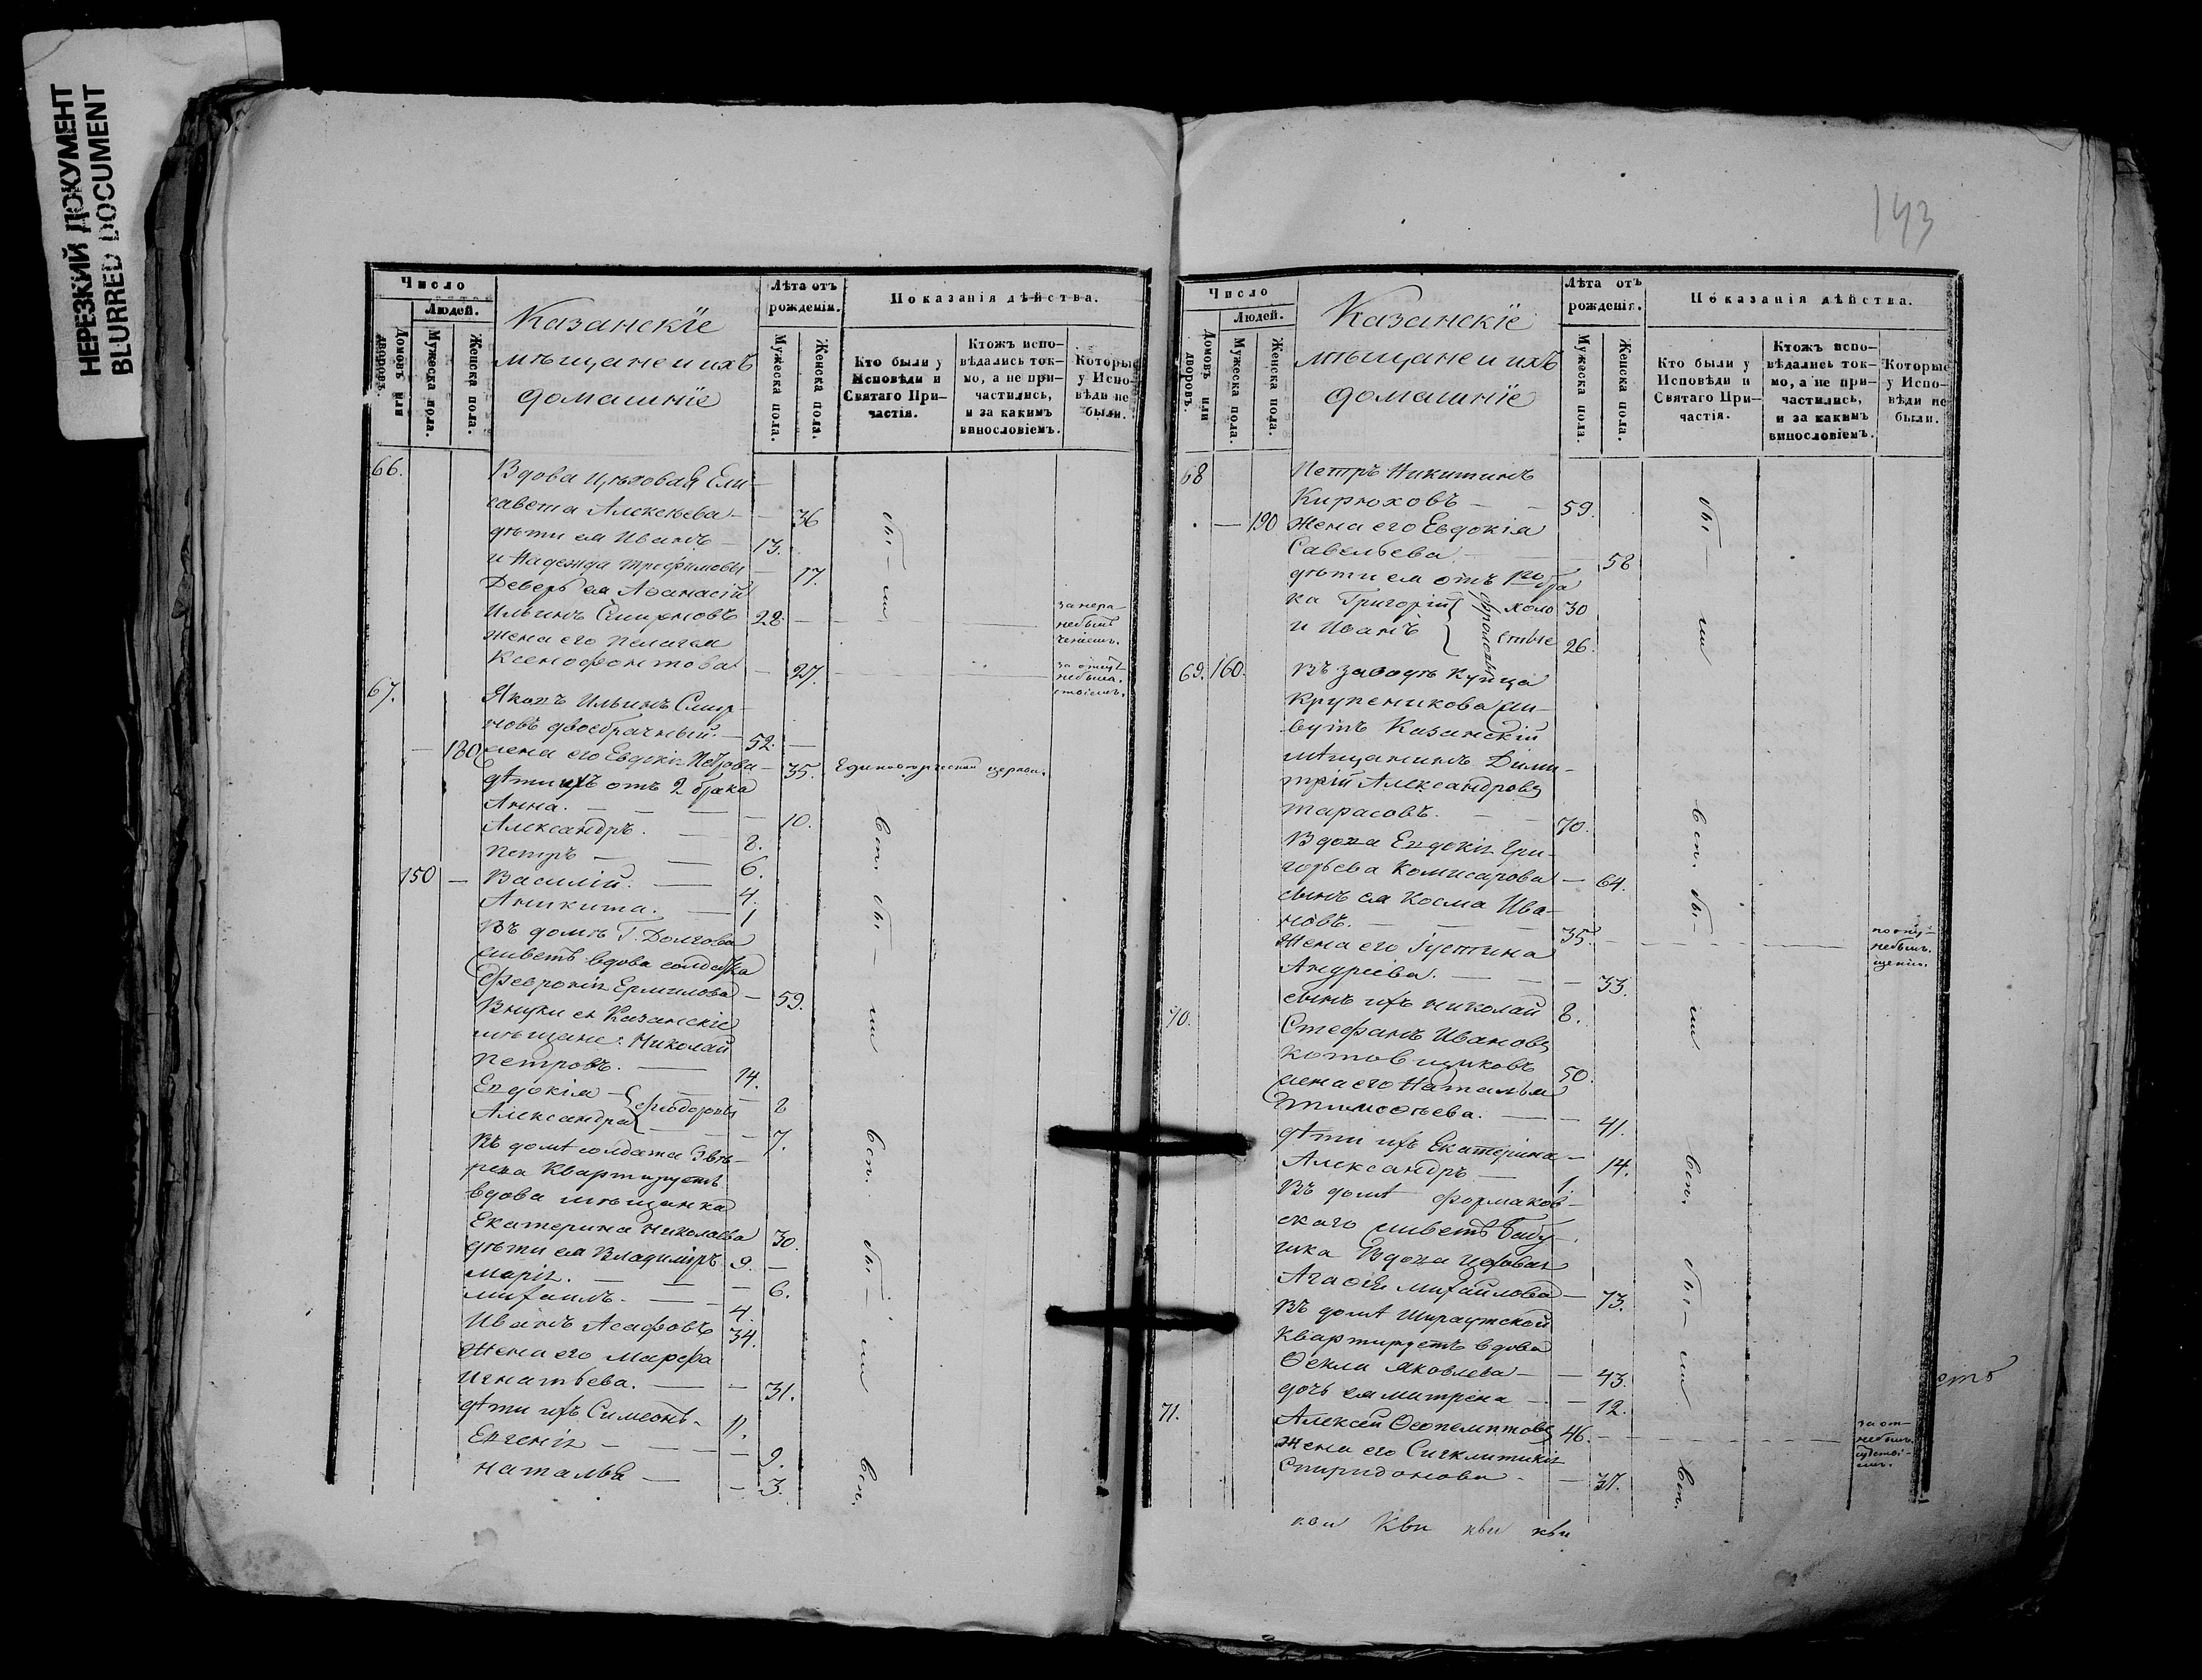 НЕРЕЗКИЙ ДОКУМЕНТ
BLURRED DOCUMENT
Число
Людей.
Домовъ или дворовъ.
Мужеска пола.
Женска пола.
Казанскіе
мѣщане и ихъ
домашніе
Лѣта отъ
рожденія.
Мужеска пола.
Женска пола.
Показанія дѣйства.
Кто были у
Исповѣди и
Святаго При-
частія.
Ктожъ испо-
вѣдались ток-
мо, а не при-
частились,
и за какимъ
винословіемъ.
Которые
у Испо-
вѣди не
были.
66. Вдова цѣховая Ели-
савета Алексѣева - 36
дѣти ея Иванъ - 13.
и Надежда Трофимовы - 17.
Деверь ея Аѳанасій
Ильинъ Смирновъ 22 - за нера- небылъ ченіемъ.
жена его Пелагея
Ксенофонтова - 27. за отсут- небыла. ствіемъ.
67. Яковъ Ильинъ Смир-
новъ двоебрачный. - 52 -
- 180 жена его Евдокія Петрова - 35. Единоверческой церкви.
дѣти ихъ отъ 2 брака
Анна. - 10.
Александръ. - 8.
Петръ - 6.
150 - Василій. - 4.
Аникита. - 1
Въ домѣ Г. Долгова
живетъ вдова солдатка
Февронія Ермилова - 59.
Внуки ея Казанскіе
мѣщане: Николай
Петровъ. - 14.
Евдокія - Ѳеодоровы - 8
Александра - 7.
Въ домѣ солдата Звѣ-
рева Квартируетъ
вдова мѣщанка
Екатерина Николаева 30.
дѣти ея Владиміръ 9. -
Марія. - 6.
Михаилъ. - 4.
Иванъ Асафовъ 34.
Жена его Марфа
Игнатьева. - 31.
дѣти ихъ Симеонъ - 11.
Евгенія - 9.
Наталья - 3.
бы - ли
всп. бы - ли
всп. бы - ли
всп.
143
Число
Людей.
Домовъ или дворовъ.
Мужеска пола.
Женска пола.
Казанскіе
мѣщане и ихъ
домашніе
Лѣта отъ
рожденія.
Мужеска пола.
Женска пола.
Показанія дѣйства.
Кто были у
Исповѣди и
Святаго При-
частія.
Ктожъ испо-
вѣдались ток-
мо, а не при-
частились,
и за какимъ
винословіемъ.
Которые
у Испо-
вѣди не
были.
68 Петръ Никитинъ
Кирюховъ - 59.
- 190 Жена его Евдокія
Савельева - 58
дѣти ея отъ 1го бра
ка Григорій Фроловы холо 30
и Иванъ стые 26.
69. 160. Въ заводѣ купца
Крупеникова жи-
вутъ Казанскій
мѣщанинъ Дими-
трій Александровъ
Тарасовъ. - 70.
Вдова Евдокія Гри-
горьева Комисарова - 64.
сынъ ея Косма Ива-
новъ. - 35. - по опу- небылъ. щенію.
Жена его Іустина
Андреева. - 33.
сынъ ихъ Николай 8.
70. Стефанъ Ивановъ
Котовщиковъ 50.
жена его Наталья
Тимоѳеева. - 41.
дѣти ихъ Екатерина - 14.
Александръ - 1.
Въ домѣ Формаков-
скаго живетъ Бабу-
шка Вдова цеховая
Агаѳія Михайлова - 73.
Въ домѣ
Квартируетъ вдова
Ѳекла Яковлева - 43.
дочь ея Матрена - 12.
71. Алексей Ѳеопемптовъ 46. - за от- небылъ. сутстві- емъ.
Жена его Сигклитикія
Спиридонова - 37.
бы - ли
всп. бы - ли
всп. бы - ли
всп.
кви Кви кви кви